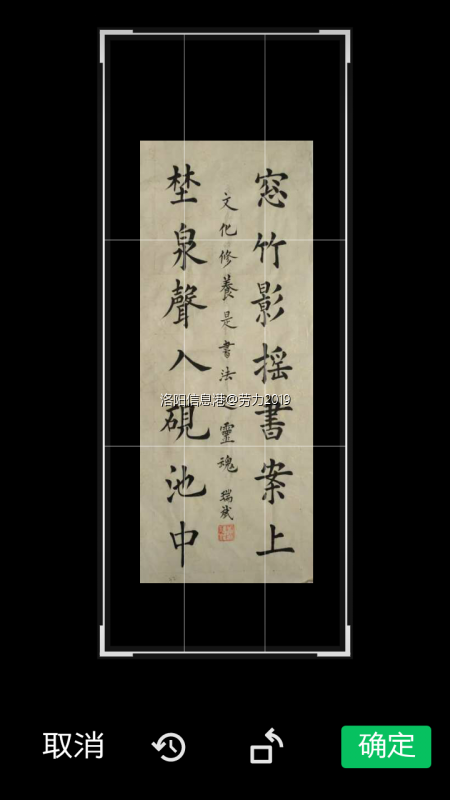 窓竹影摇書案上
文化修養是書法之靈魂
瑞斌
埜泉聲入硯池中
洛阳信息港@劳力2019
取消
确定